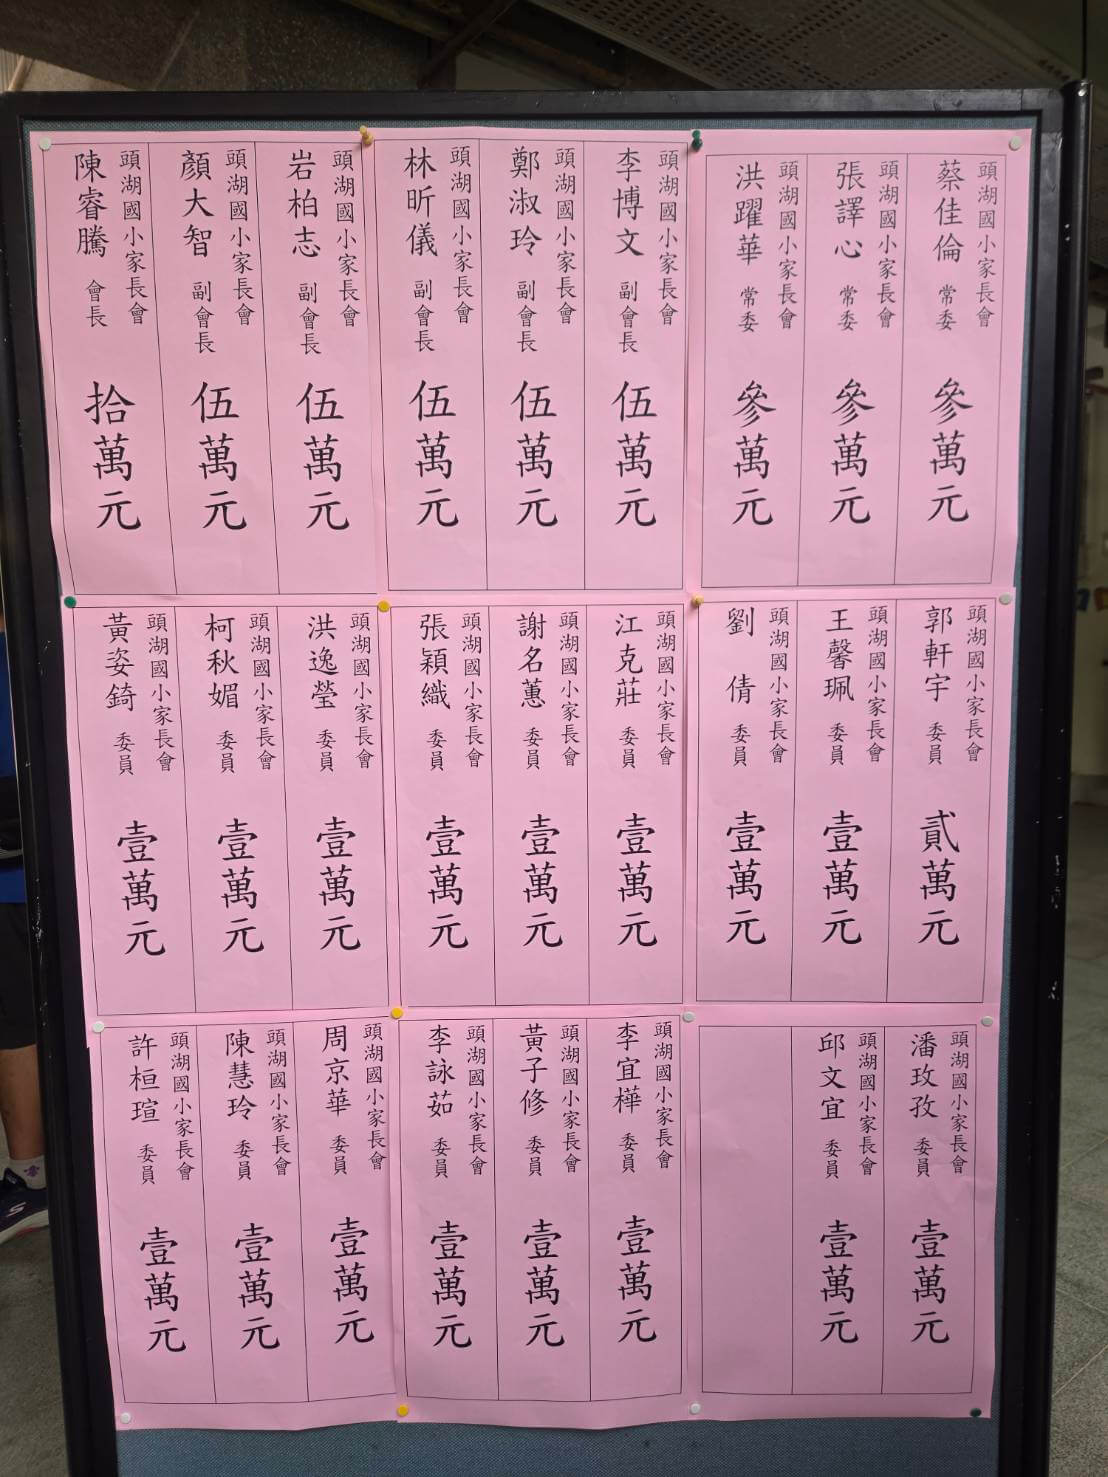 頭湖國小家長會
陳睿騰 會長 拾萬元
頭湖國小家長會
顏大智 副會長 伍萬元
頭湖國小家長會
岩柏志 副會長 伍萬元
頭湖國小家長會
林昕儀 副會長 伍萬元
頭湖國小家長會
鄭淑玲 副會長 伍萬元
頭湖國小家長會
李博文 副會長 伍萬元
頭湖國小家長會
洪躍華 常委 參萬元
頭湖國小家長會
張譯心 常委 參萬元
頭湖國小家長會
蔡佳倫 常委 參萬元
頭湖國小家長會
黃姿錡 委員 壹萬元
頭湖國小家長會
柯秋媚 委員 壹萬元
頭湖國小家長會
洪逸瑩 委員 壹萬元
頭湖國小家長會
張穎織 委員 壹萬元
頭湖國小家長會
謝名蕙 委員 壹萬元
頭湖國小家長會
江克莊 委員 壹萬元
頭湖國小家長會
劉倩 委員 壹萬元
頭湖國小家長會
王馨珮 委員 壹萬元
頭湖國小家長會
郭軒宇 委員 貳萬元
頭湖國小家長會
許桓瑄 委員 壹萬元
頭湖國小家長會
陳慧玲 委員 壹萬元
頭湖國小家長會
周京華 委員 壹萬元
頭湖國小家長會
李詠茹 委員 壹萬元
頭湖國小家長會
黃子修 委員 壹萬元
頭湖國小家長會
李宜樺 委員 壹萬元
頭湖國小家長會
邱文宜 委員 壹萬元
頭湖國小家長會
潘玫孜 委員 壹萬元